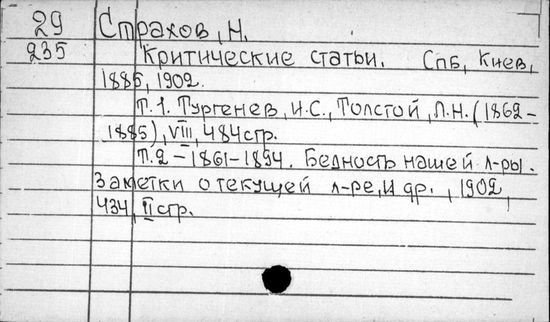 29 Страхов, Н.
235 Критические статьи. Спб, Киев,
1885, 1902.
Т.1. Тургенев, И.С., Толстой, Л.Н. (1862-
1885), VIII, 484 стр.
Т.2 - 1861-1894. Бедность нашей л-ры.
Заметки о текущей л-ре, и др., 1902,
434, II стр.